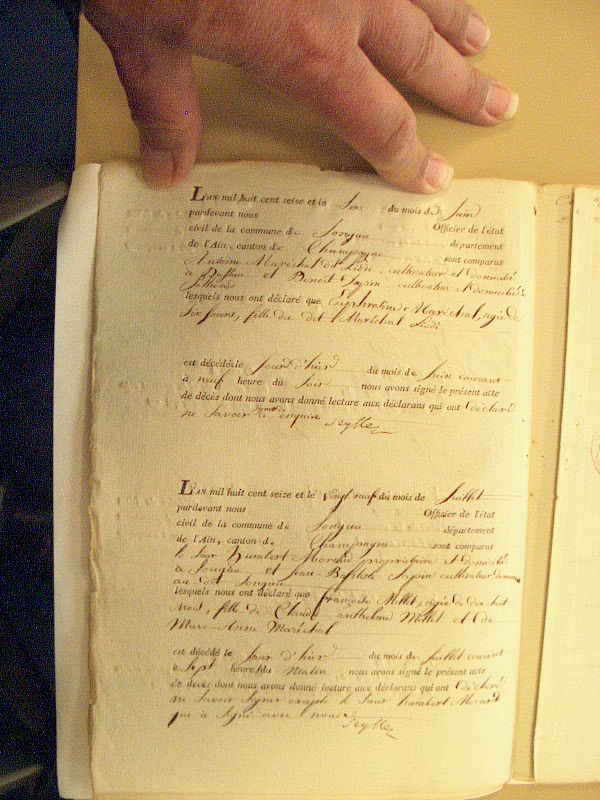 L'AN mil huit cent seize et le Six du mois de Juin
pardevant nous Officier de l'état
civil de la commune de Songieu département
de l'Ain, canton de Champagne sont comparus
Antoine Maréchal dit cultivateur et domicilié
à et Benoit Sapin, cultivateur et domicilié à

lesquels nous ont déclaré que Euphrosine Maréchal, agée de
Six jours, fille du dit Maréchal
est décédé le jour d'hier du mois de Juin courant
à neuf heure du Soir nous avons signé le présent acte
de décès dont nous avons donné lecture aux déclarans qui ont déclaré
ne Savoir Signer de enquis Seyssel
L'AN mil huit cent seize et le vingt neuf du mois de Juillet
pardevant nous Officier de l'état
civil de la commune de Songieu département
de l'Ain, canton de Champagne sont comparus
le Sieur Humbert Morand propriétaire et domicilié
à Songieu et Jean-Baptiste Sapin cultivateur
au dit Songieu
lesquels nous ont déclaré que françoise Millet, agée de dix huit
mois, fille de Claude anthelme Millet et de
Marie-Anne Maréchal
est décédé le jour d'hier du mois de juillet courant
à Sept heure du Matin nous avons signé le présent acte
de décès dont nous avons donné lecture aux déclarans qui ont déclaré
ne Savoir Signer excepté le Sieur humbert Morand
qui a Signé avec nous